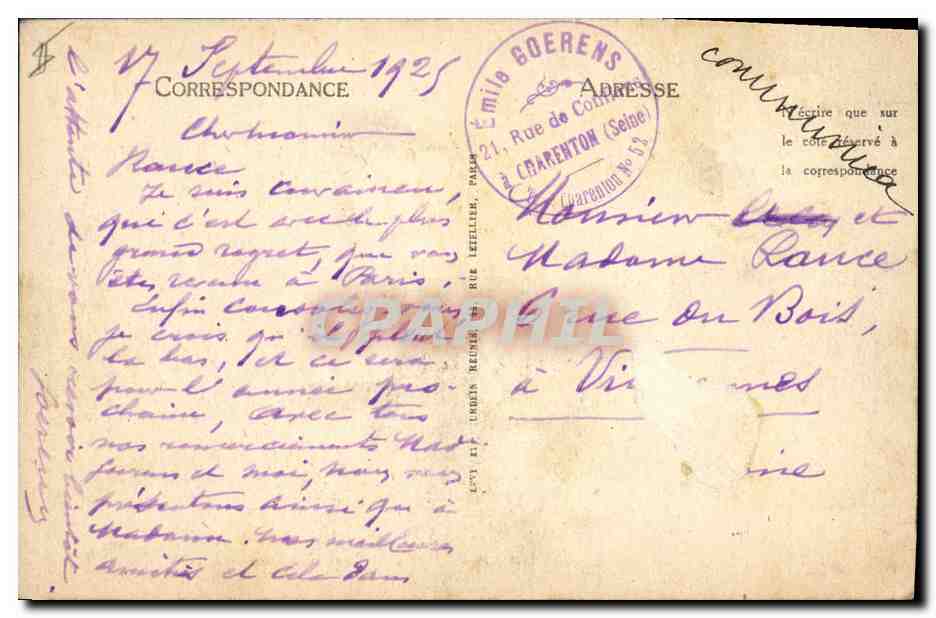 17 Septembre 1925
CORRESPONDANCE
Cher Monsieur
Rance
Je suis convaincu,
que c'est avec le plus
grand regret, que vous
êtes revenu à Paris,
Enfin consolez vous
je crois qu'il pleut
là bas, et ce sera
pour l'année pro-
chaine, avec tous
nos remerciements Mad.
Goerens et moi, nous vous
présentons ainsi que à
Madame, nos meilleures
amitiés et cela dans
l'attente de vous revoir bientôt.
Goerens
LEVY ET NEURDEIN REUNIS, 44, RUE LETELLIER, PARIS
Émile GOERENS
21, Rue de
CHARENTON (Seine)
Charenton No 52
ADRESSE
communica
N'écrire que sur
le côté réservé à
la correspondance
Monsieur et
Madame Rance
6 rue du Bois,
à
CPAPHIL